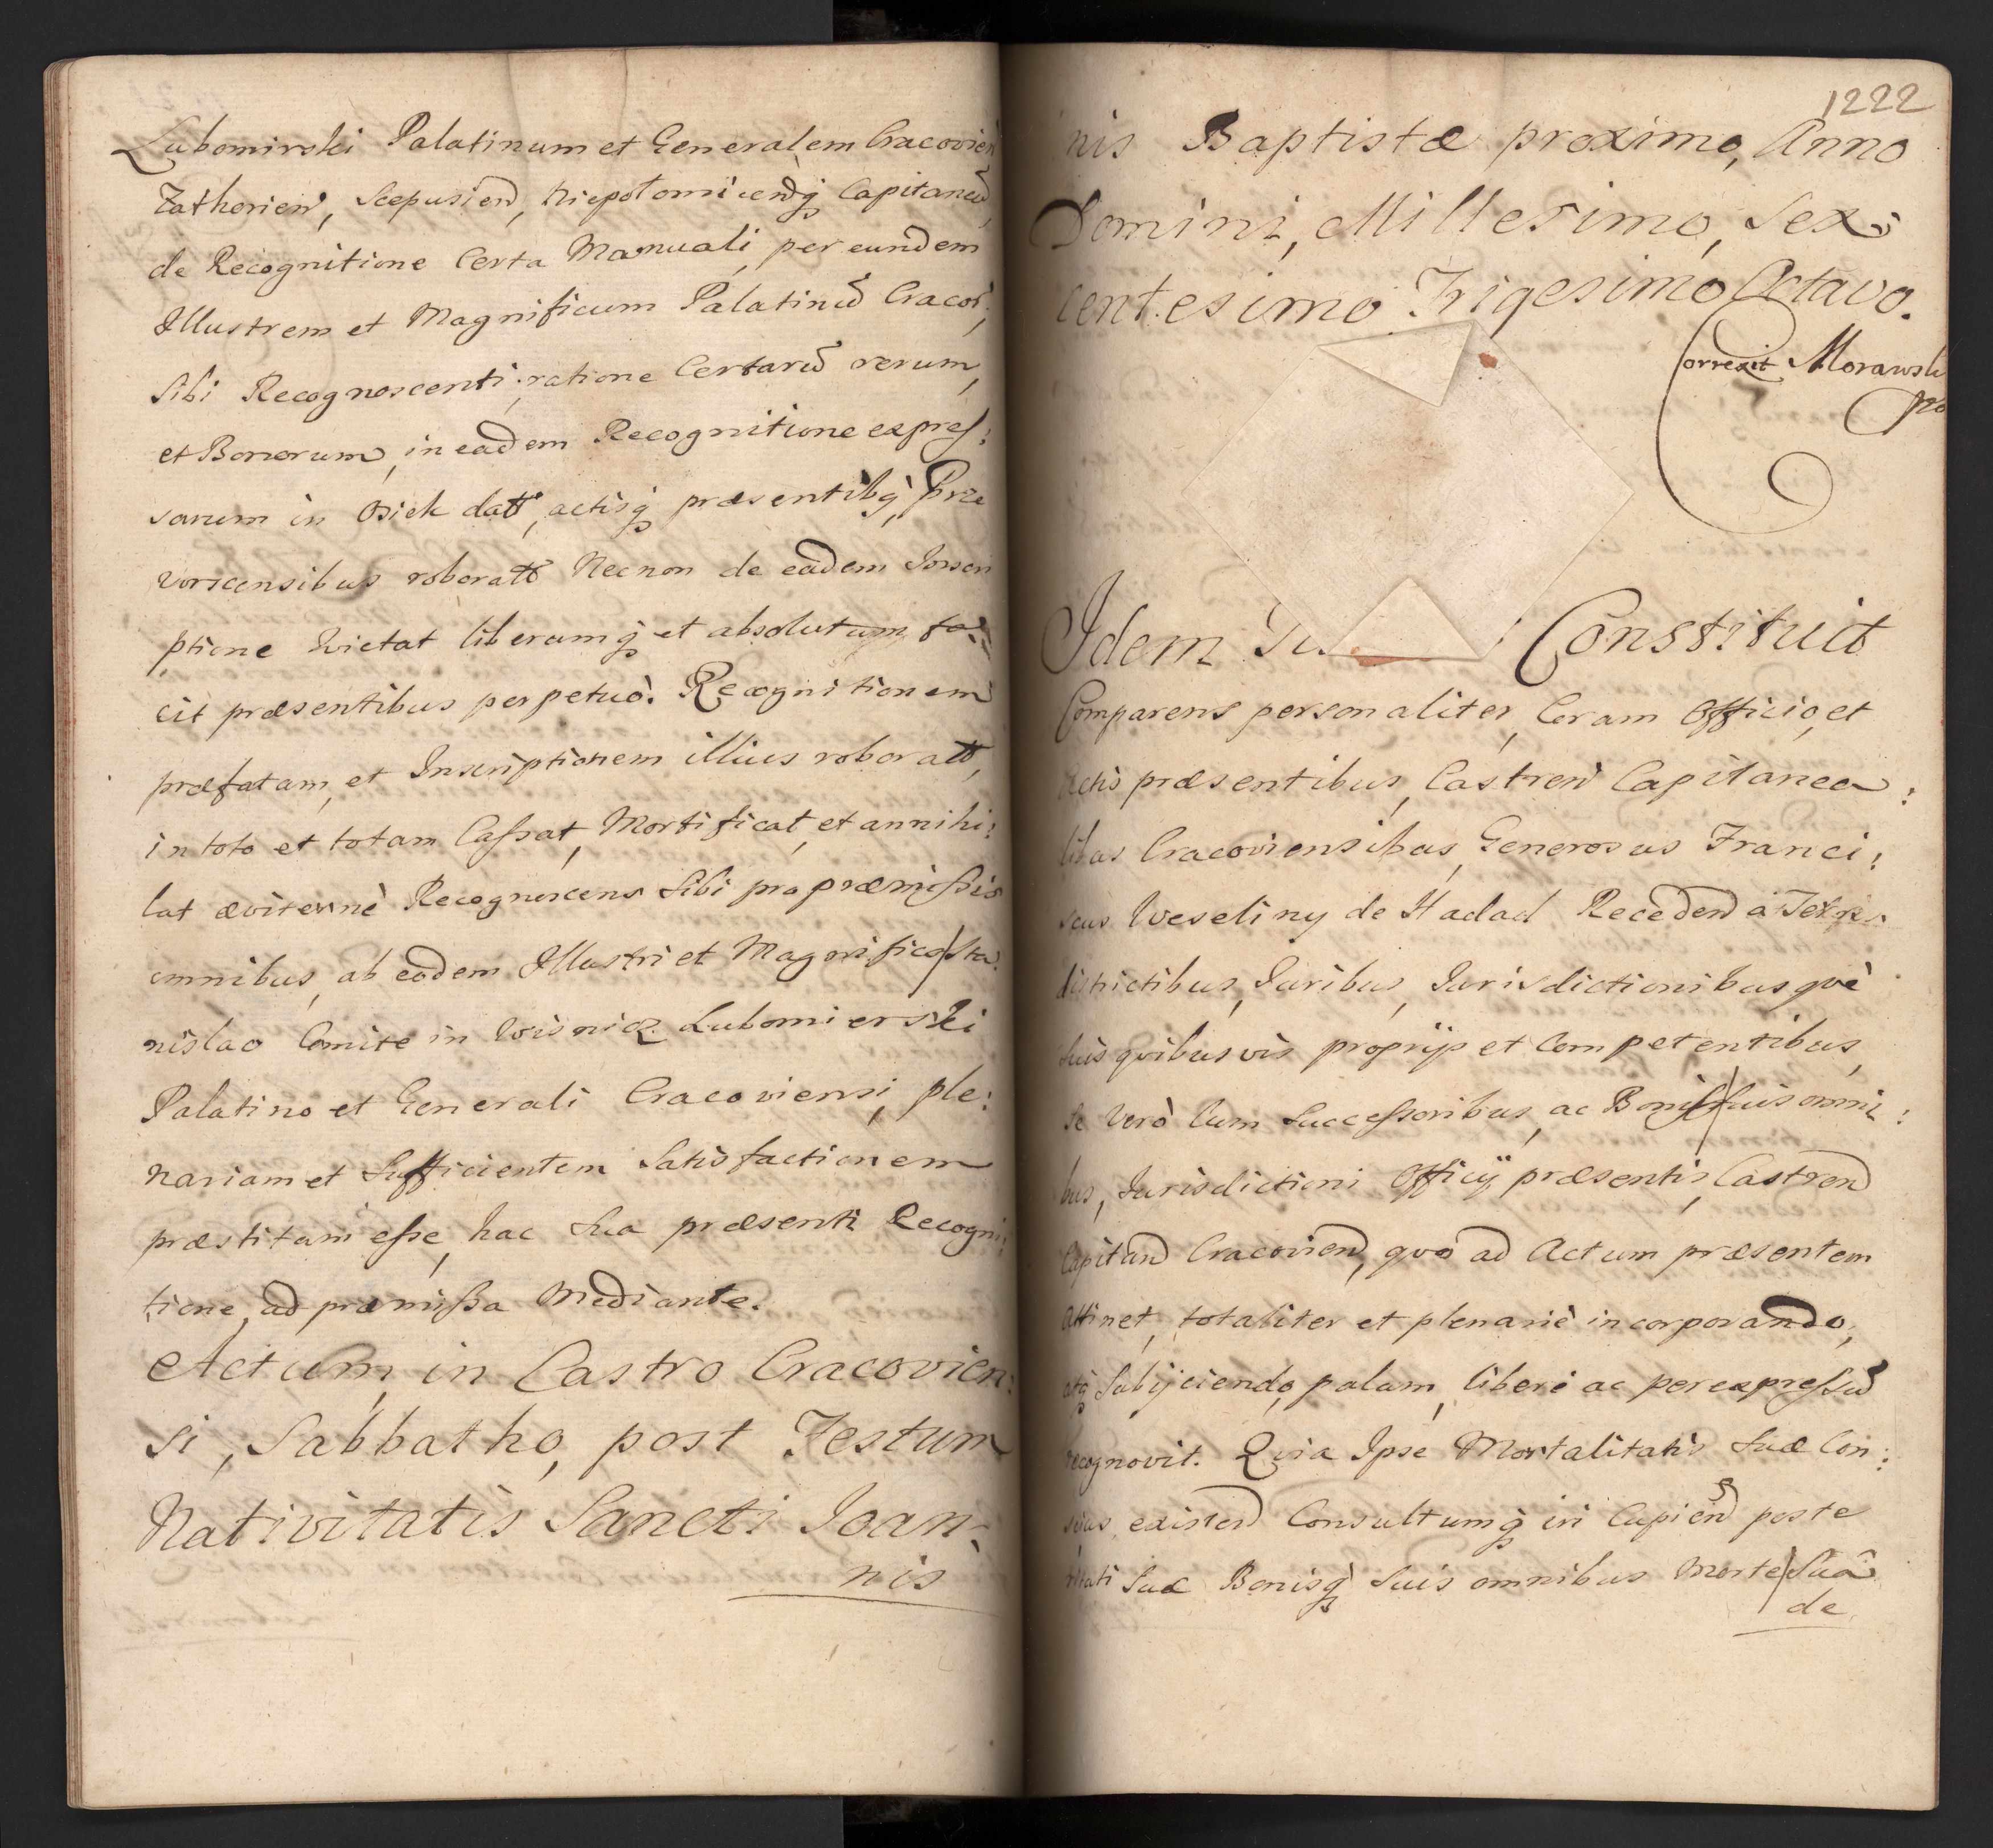 Lubomirski Palatinum et Generalem Cracovien
Zathorien, Scepusien, Niepolomicenq Capitaneu,
de Recognitione Certa Manuali, per eundem
Illustrem et Magnificum Palatinu Cracov;
Sibi Recognoscenti, ratione Certaru rerum,
et Bonorum, in eadem Recognitione expres:
sarum in Osiek datt, actisq præsentibq, Prze
vorscensibus roboratt Necnon de eadem Inscri
ptione Quietat liberumq et absolutum fa:
cit præsentibus perpetuò. Recognitionem
præfatam, et Inscriptionem illius roboratt,
in toto et totam Cassat, Mortificat, et annihi:
lat æviternè Recognoscens Sibi pro præmissis
omnibus, ab eodem Illustri et Magnifico Sta:
nislao Comite in Wisnicz Lubomierski
Palatino et Generali Cracoviensi, ple:
nariam et Sufficientem Satisfactionem
præstitam esse, hac Sua præsenti Recogni:
tione, ad præmissa Mediante.
Actum, in Castro Cracovien:
si, Sabbatho, post Festum
Nativitatis Sancti Ioan-
nis
1222
nis Baptistæ proximo, Anno
Domini, Millesimo, Sex:
centesimo Trigesimo Octavo.
Correxit Morawski
Idem Constituit
Comparens personaliter, Coram Officio, et
Actis præsentibus, Castren Capitanea:
libus Cracoviensibus, Generosus Franci:
scus Weseliny de Hadad Receden à Terris
districtibus, Iuribus, Iurisdictionibusquè
Suis quibusvis proprijs et Competentibus,
Se verò Cum Successoribus, ac Bonis Suis omni:
bus, Iurisdictioni Officij præsentis, Castren
Capitan Cracovien, quo ad Actum præsentem
Attinet, totaliter et plenariè incorporando,
atq Subijciendo, palam, liberè ac per expressu
recognovit. Quia Ipse Mortalitatis Suæ Con:
scius existen Consultumq iri Cupiens poste
ritati Suæ Bonisq Suis omnibus Morte Suâ
de